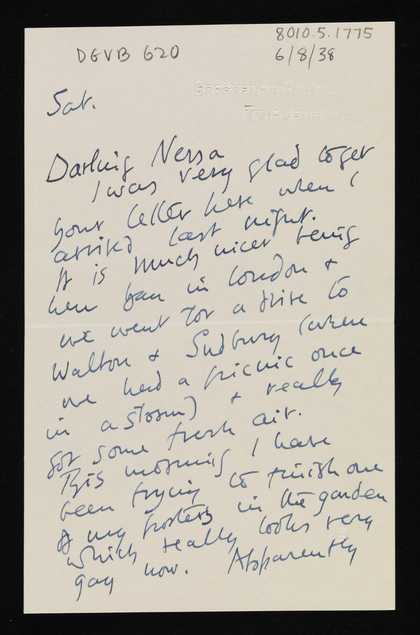 DGVB 620
8010.5.1775
6/8/38
Sat.
Darling Nessa
I was very glad to get
your letter here when I
arrived last night.
It is much nicer being
here than in London &
we went for a drive to
Walton & Sudbury (where
we had a picnic once
in a storm) & really
got some fresh air.
This morning I have
been trying to finish one
of my posters in the garden
which really looks very
gay now. Apparently